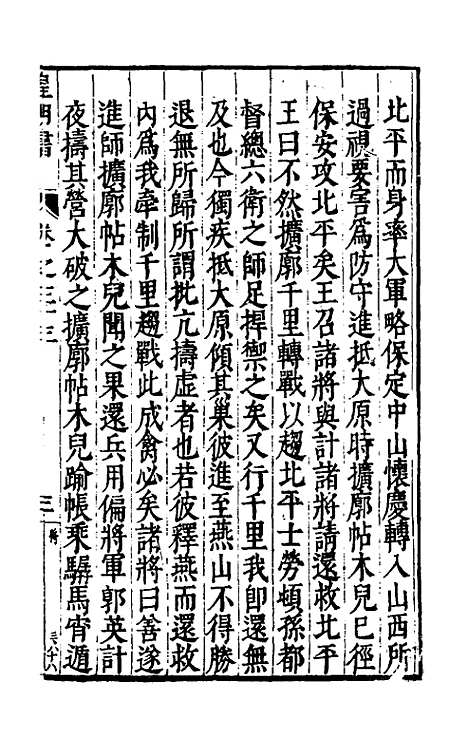 北平而身率大軍略保定中山懷慶轉入山西所
過視要害爲防守進抵大原時擴廓帖木兒已徑
保安攻北平矣王召諸將與計諸將請還救北平
王曰不然擴廓千里轉戰以趨北平士勞頓孫都
督總六衛之師足捍禦之矣又行千里我即還無
及也今獨疾抵大原傾其巢彼進至燕山不得勝
退無所歸所謂批亢擣虛者也若彼釋燕而還救
內爲我牽制千里趨戰此成禽必矣諸將曰善遂
進師擴廓帖木兒聞之果還兵用偏將軍郭英計
夜擣其營大破之擴廓帖木兒踰帳乘驏馬宵遁
皇明書 卷之三十三
三